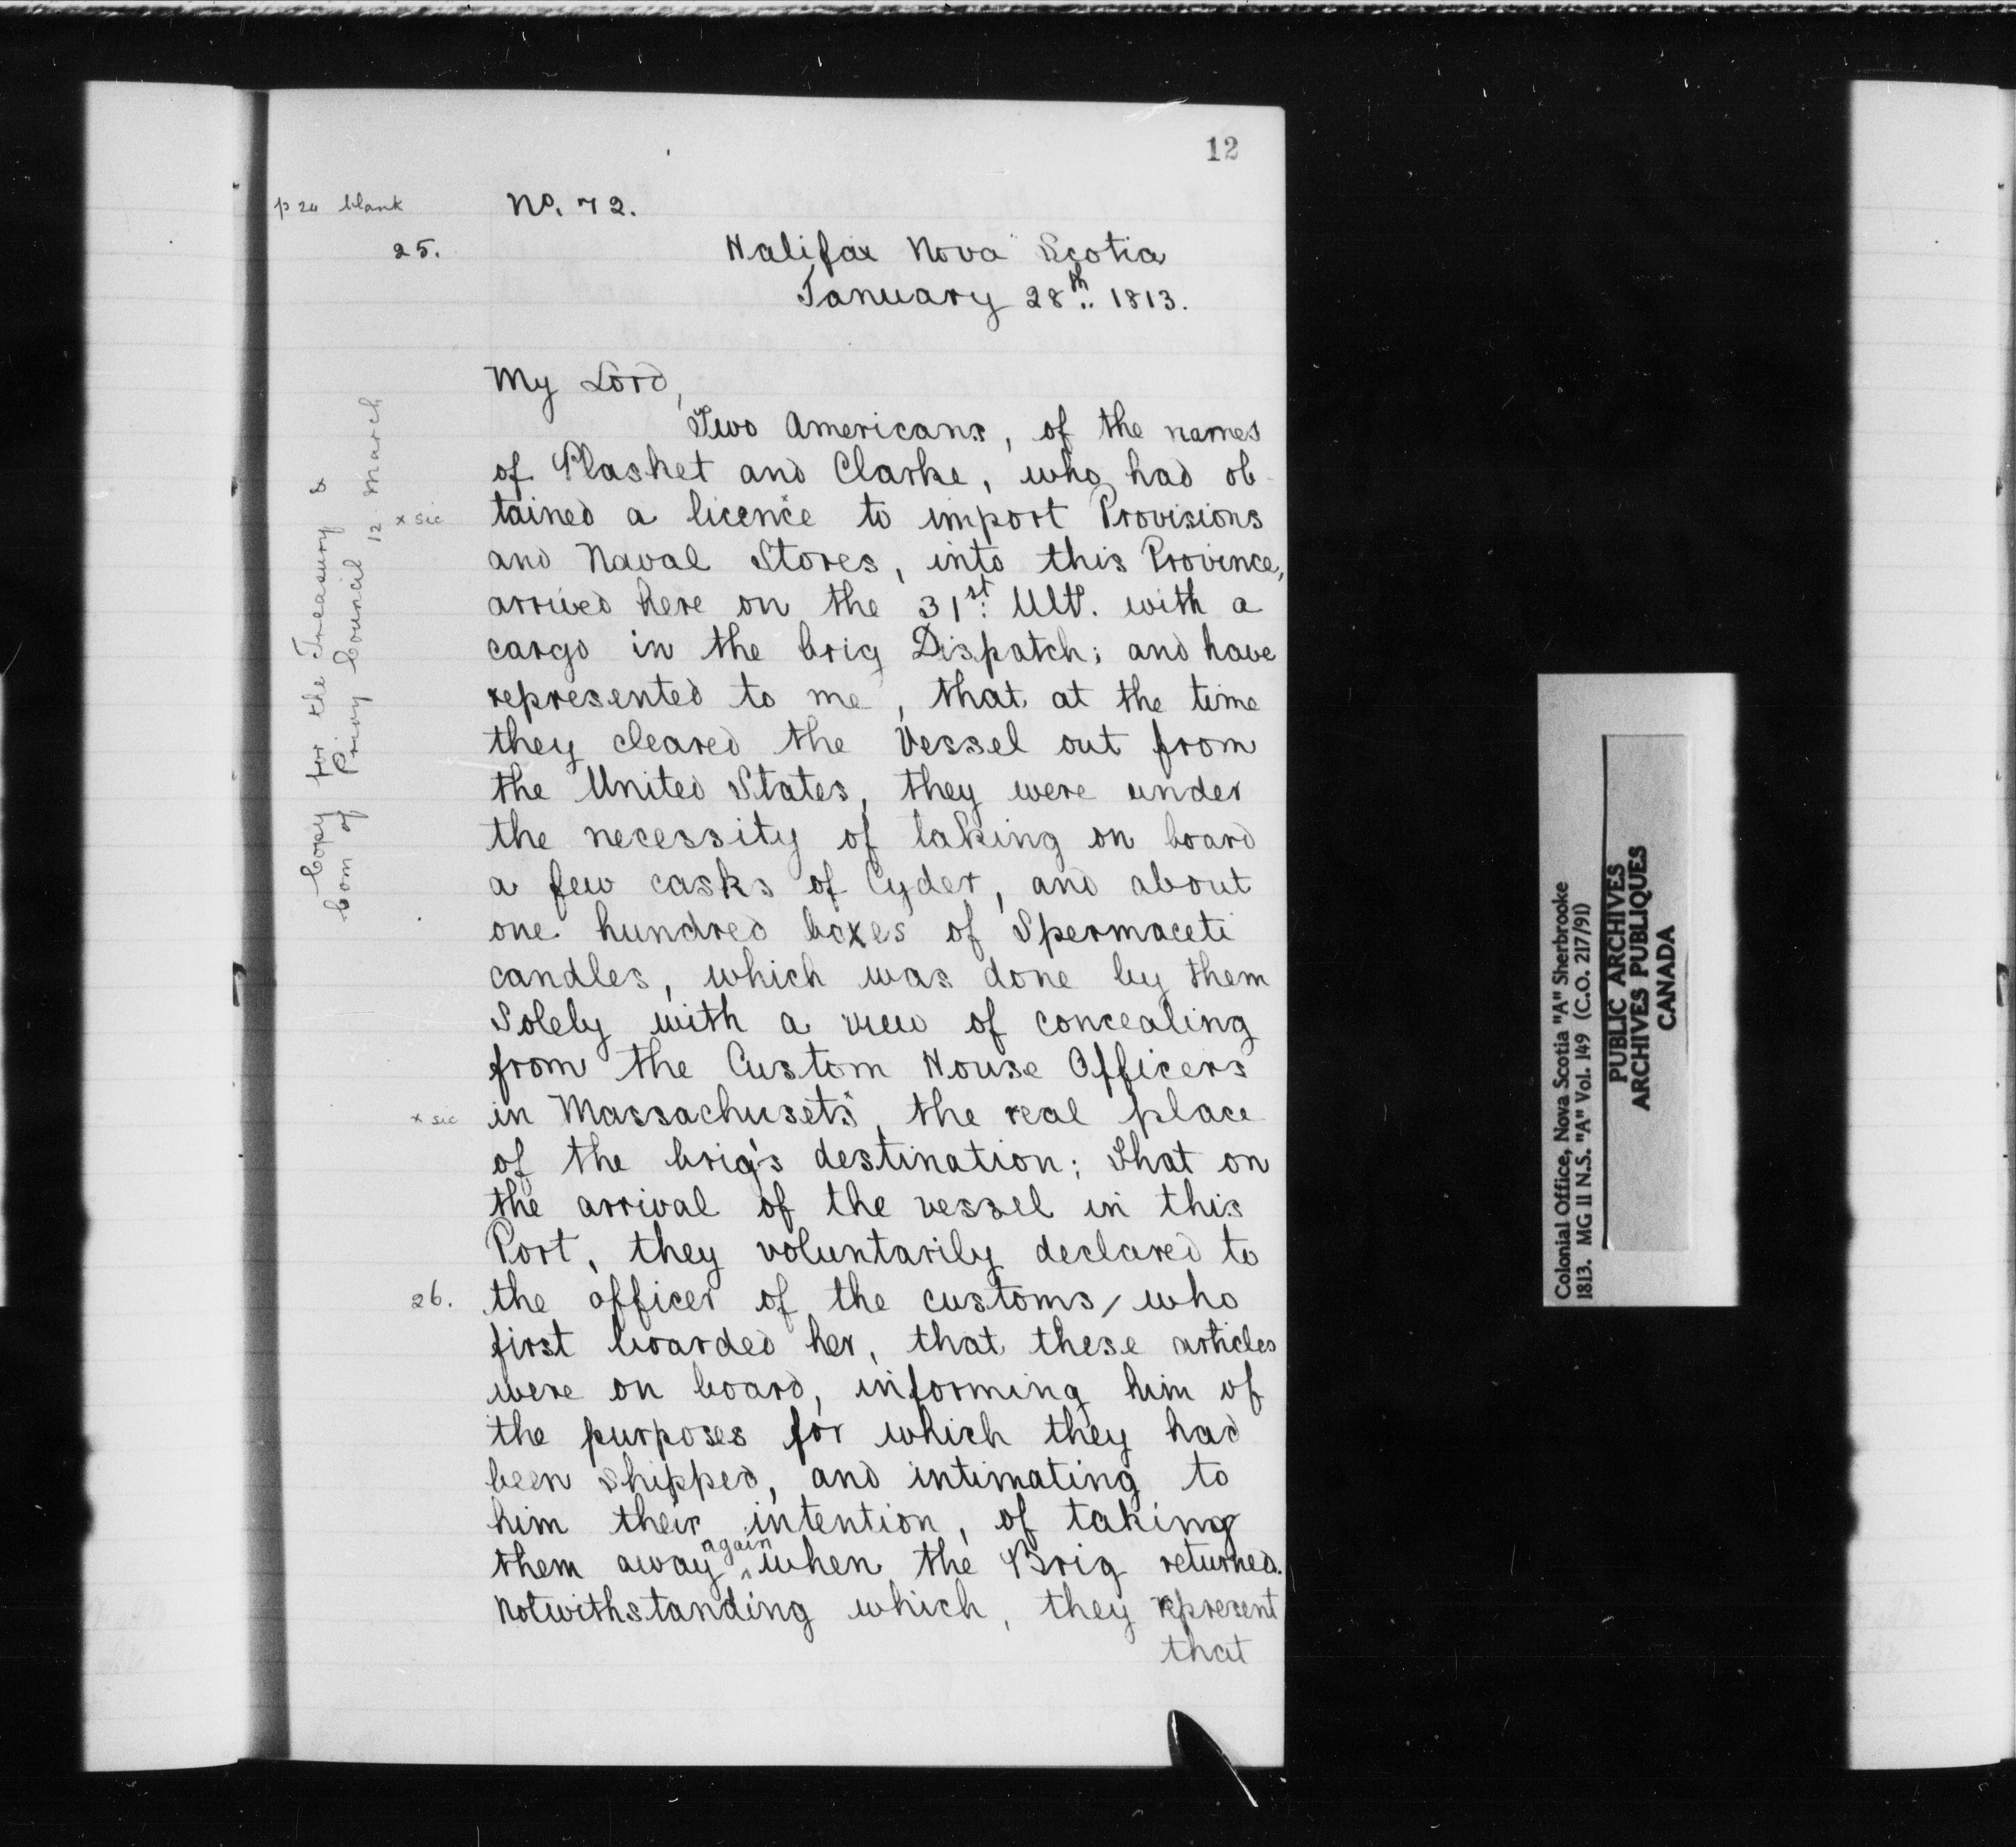 12
p 24 blank
No. 72.
25.
Halifax Nova Scotia
January 28th. 1813.
My Lord,
Two Americans, of the names
of Plasket and Clarke, who had ob-
x sic
tained a licence x to import Provisions
and Naval Stores, into this Province,
arrived here on the 31st. Ulto. with a
cargo in the brig Dispatch; and have
represented to me, that at the time
they cleared the Vessel out from
the United States, they were under
the necessity of taking on board
a few casks of Cyder, and about
one hundred boxes of Spermaceti
candles, which was done by them
Solely with a view of concealing
from the Custom House Officers
x sic
in Massachusets x, the real place
of the brig's destination; That on
the arrival of the vessel in this
Port, they voluntarily declared to
26.
the officer of the customs / who
first boarded her, that these articles
were on board, informing him of
the purposes for which they had
been shipped, and intimating to
him their intention, of taking
them away again when the Brig returned.
Notwithstanding which, they represent
that
Copy for the Treasury &
Com of Privy Council 12 March
Colonial Office, Nova Scotia "A" Sherbrooke
1813. MG 11 N.S. "A" Vol. 149 (C.O. 217/91)
PUBLIC ARCHIVES
ARCHIVES PUBLIQUES
CANADA